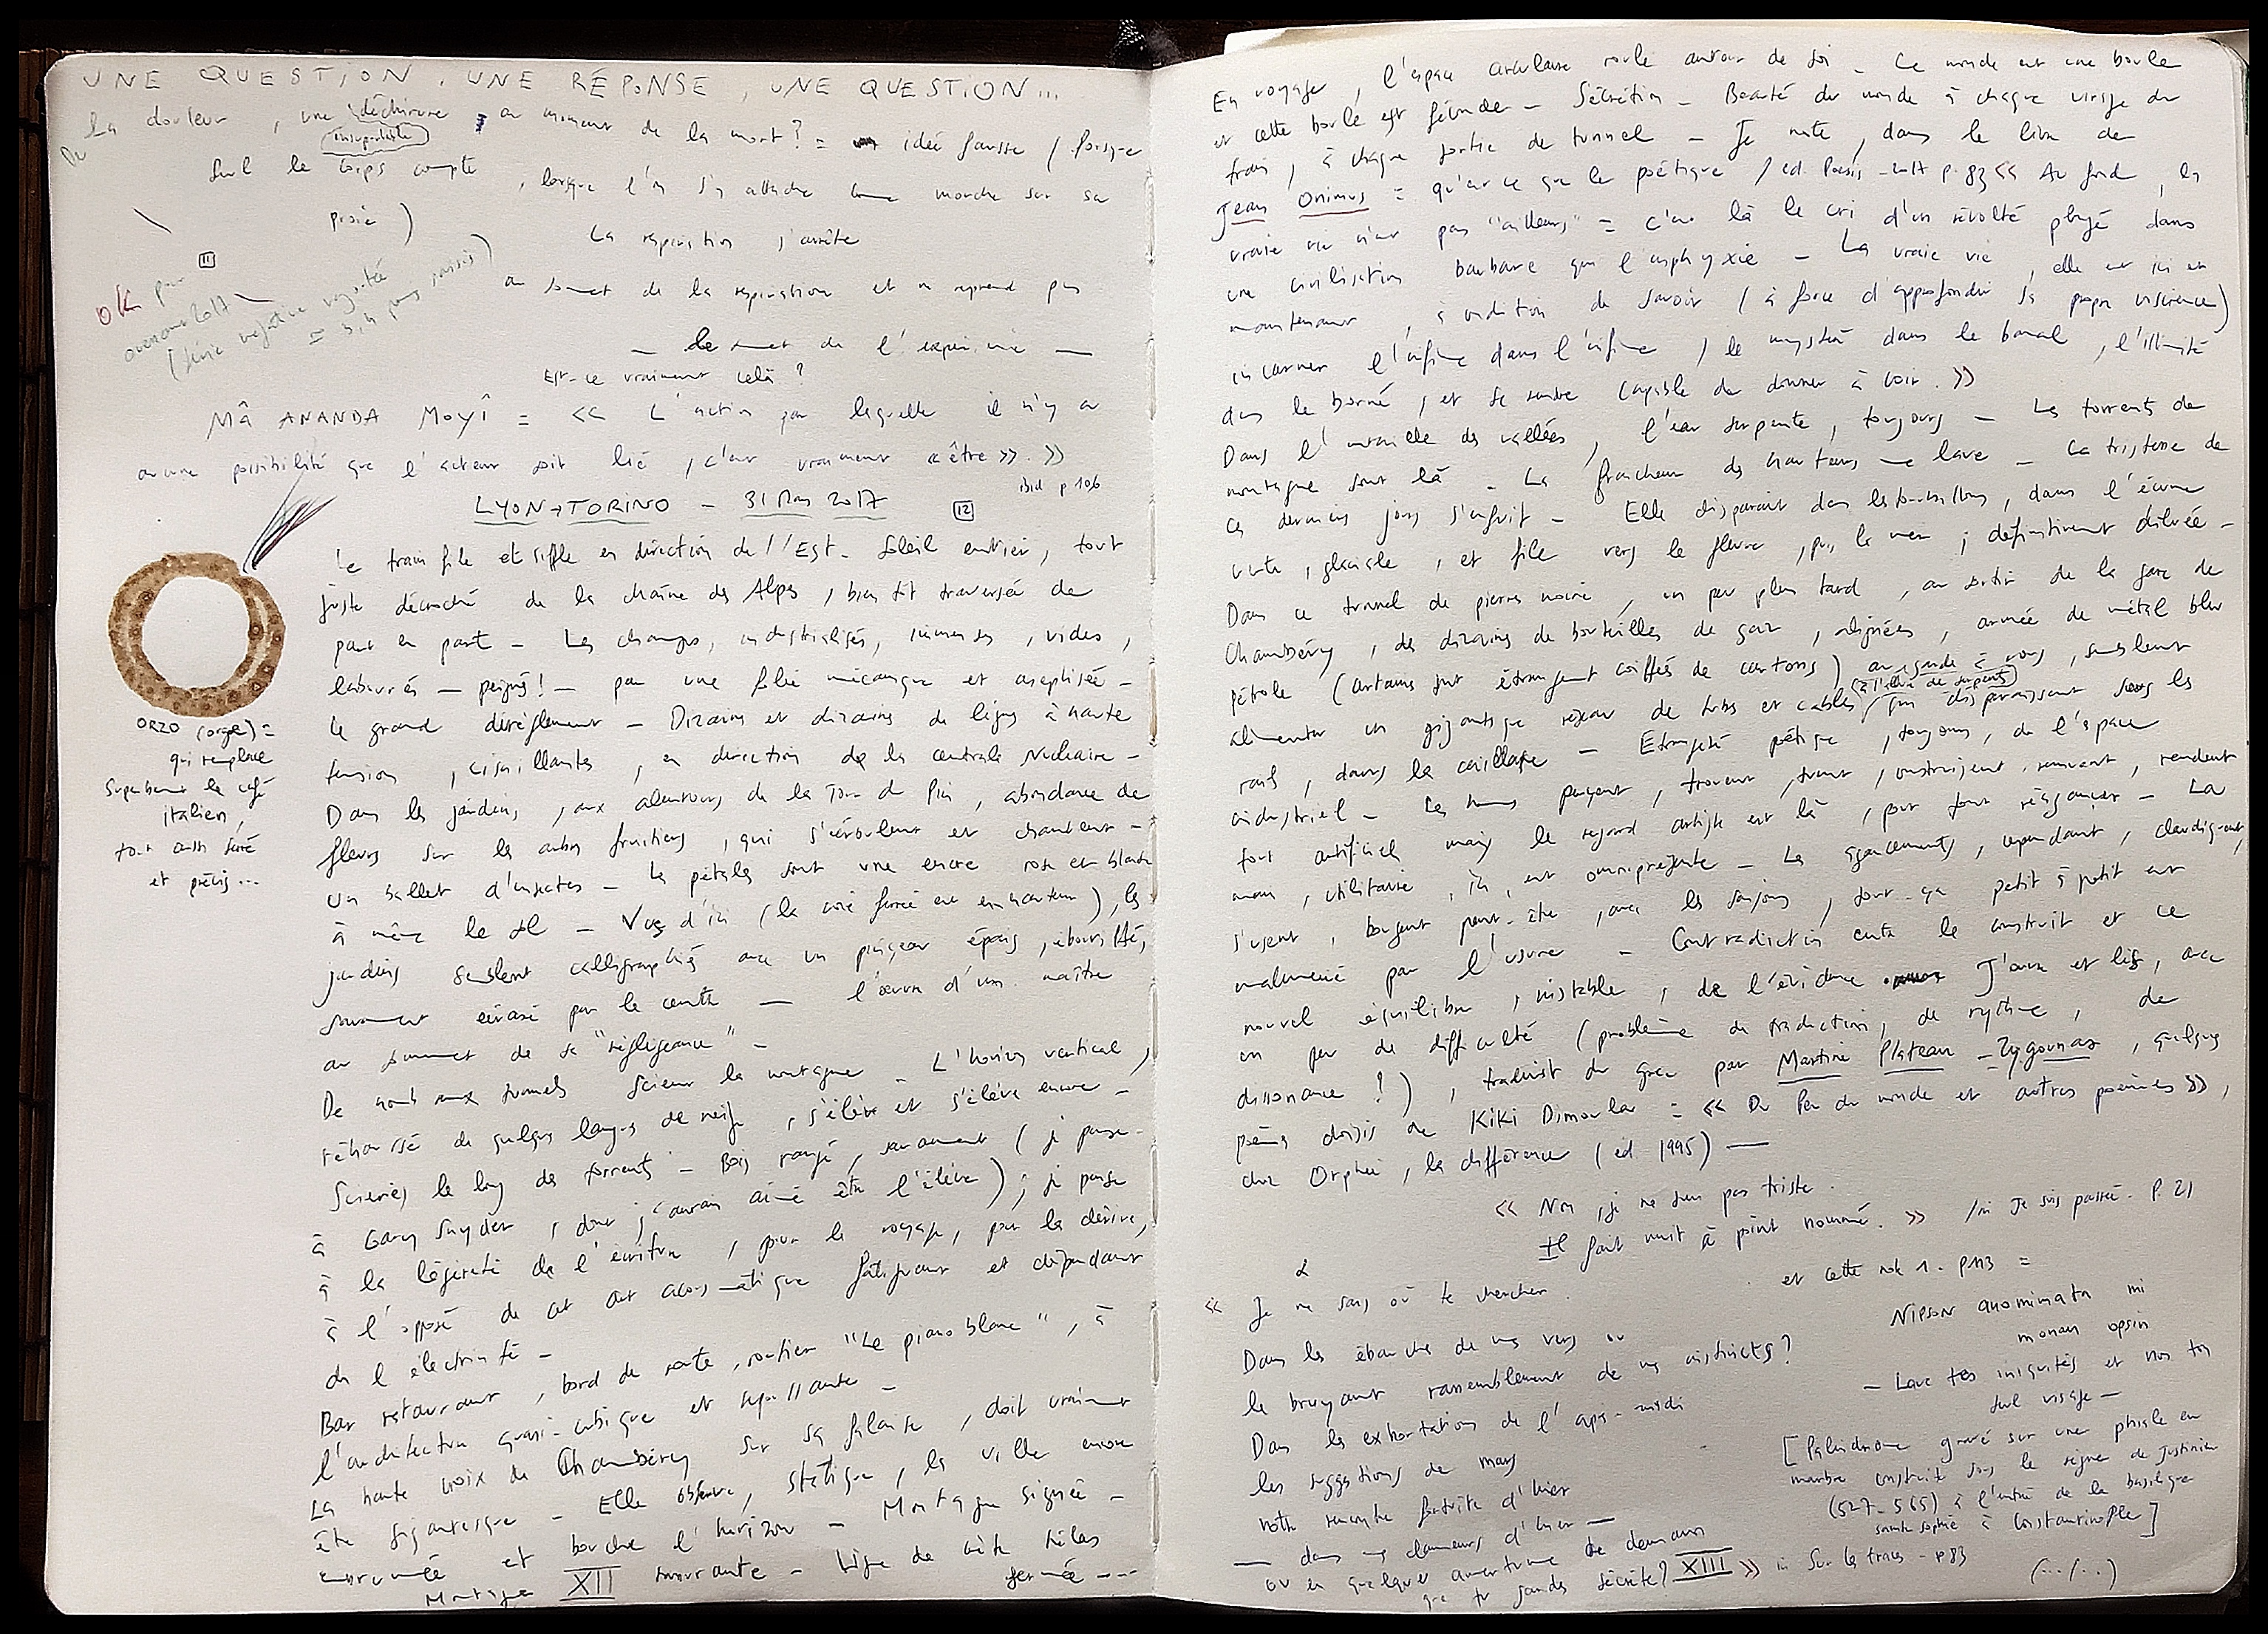 UNE QUESTION, UNE RÉPONSE, UNE QUESTION...
La douleur, une déchirure au moment de la mort? = idée fausse (lorsque
insupportable
seul le corps compte, lorsque l'on s'y attache comme mouche sur sa
proie)
La respiration s'arrête
11
OK pour
ouverture 2017
au sommet de la respiration et ne reprend pas
— le sommet de l'expérience —
Est-ce vraiment cela?
MÂ ANANDA MOYÎ = << L'action par laquelle il n'y a
aucune possibilité que l'acteur soit lié, c'est vraiment « être ». >>
ibid p 106
LYON → TORINO — 31 Mars 2017
12
Le train file et siffle en direction de l'Est — Soleil entier, tout
juste décroché de la chaîne des Alpes, bientôt traversée de
part en part — Les champs, industrialisés, immenses, vides,
labourés — peignés! — par une folie mécanique et aseptisée —
Le grand dérèglement — Dizaines et dizaines de lignes à haute
tension, cisaillantes, en direction de la centrale nucléaire —
Dans les jardins, aux alentours de la Tour du Pin, abondance de
fleurs sur les arbres fruitiers, qui s'écroulent et chantent —
un ballet d'insectes — les pétales sont une encre rose et blanche
à même le sol — Vus d'ici (la voie ferrée est en hauteur), les
jardins semblent calligraphiés avec un pinceau épais, ébouriffé,
savamment écrasé par le centre — l'œuvre d'un maître
au sommet de sa "négligeance" —
De nombreux tunnels scient la montagne — L'horizon vertical,
rehaussé de quelques langues de neige, s'élève et s'élève encore —
Scieries le long des torrents — Bois rangé, savamment (je pense
à Gary Snyder, dont j'aurais aimé être l'élève); je pense
à la légèreté de l'écriture, pour le voyage, pour la dérive,
à l'opposé de cet art acousmatique fatiguant et dépendant
de l'électricité —
Bar restaurant, bord de route, routier "Le piano blanc", à
l'architecture quasi-cubique et repoussante —
La haute croix de Chambéry sur sa falaise, doit vraiment
être gigantesque — Elle observe, statique, la ville encore
embrumée et bouche l'horizon — Montagne signée —
Montagne XII mourante — Ligne de crête hélas
fermée ---
ORZO (orge) =
qui remplace
superbement le café
italien,
tout aussi serré
et précis...
En voyage, l'espace circulaire roule autour de soi — Ce monde est une boule
et cette boule est féconde — Sécrétion — Beauté du monde à chaque virage du
train, à chaque sortie de tunnel — Je note, dans le livre de
Jean Onimus = qu'est ce que le poétique / ed. Poesis — 2017 p. 83 << Au fond, la
vraie vie n'est pas "ailleurs" = c'est là le cri d'un révolté plongé dans
une civilisation barbare qui l'asphyxie — La vraie vie, elle est ici et
maintenant, à condition de savoir (à force d'approfondir sa propre existence)
incarner l'infini dans l'infime, le mystère dans le banal, l'illimité
dans le borné, et se rendre capable de donner à voir. >>
Dans l'entaille des vallées, l'eau serpente, toujours — Les torrents de
montagne sont là — La fraîcheur des hauteurs me lave — La tristesse de
ces derniers jours s'enfuit — Elle disparaît dans les tourbillons, dans l'écume
verte, glaciale, et file vers le fleuve, puis la mer; définitivement diluée —
Dans ce tunnel de pierres noires, un peu plus tard, au sortir de la gare de
Chambéry, des dizaines de bouteilles de gaz, alignées, armée de métal bleu
pétrole (certaines sont étrangement coiffées de cartons) au garde à vous, semblent
alimenter un gigantesque réseau de tubes et cables (à l'allure de serpents) qui disparaissent sous les
rails, dans la caillasse — Etrangeté poétique, toujours, de l'espace
industriel — Les hommes percent, trouent, tuent, construisent, remuent, rendent
tout artificiel mais le regard artiste est là, pour tout réagencer — La
main, utilitaire, ici, est omniprésente — Les agencements, cependant, claudiquent,
s'usent, bougent peut-être, avec les saisons, tout ça petit à petit est
malmené par l'usure — Contradiction entre le construit et ce
nouvel équilibre, instable, de l'évidence. J'ouvre et lis, avec
un peu de difficulté (problème de traduction, de rythme, de
dissonance?), traduit du grec par Martine Plateau-Zygounas, quelques
poèmes choisis de Kiki Dimoula = << Du Peu du monde et autres poèmes >>,
chez Orphée, la différence (ed. 1995) —
<< Non, je ne suis pas triste.
Il fait nuit à point nommé. >> / in Je suis passée. P. 21
&
et cette note 1. p 113 =
<< Je ne sais où te chercher.
Dans les ébauches de nos vers ou
le bruyant rassemblement de nos instincts?
Dans les exhortations de l'après-midi
les suggestions de mars
notre rencontre fortuite d'hier
— dans nos clameurs d'hier —
ou en quelque aventure de demain
que tu gardes secrète? XIII >> in Sur les traces — p 83
Nipson anomimata mi
monan opsin
— Lave tes iniquités et non ton
seul visage —
[Palindrome gravé sur une phiale en
marbre construite sous le règne de Justinien
(527-565) à l'entrée de la basilique
sainte sophie à Constantinople]
(.../...)